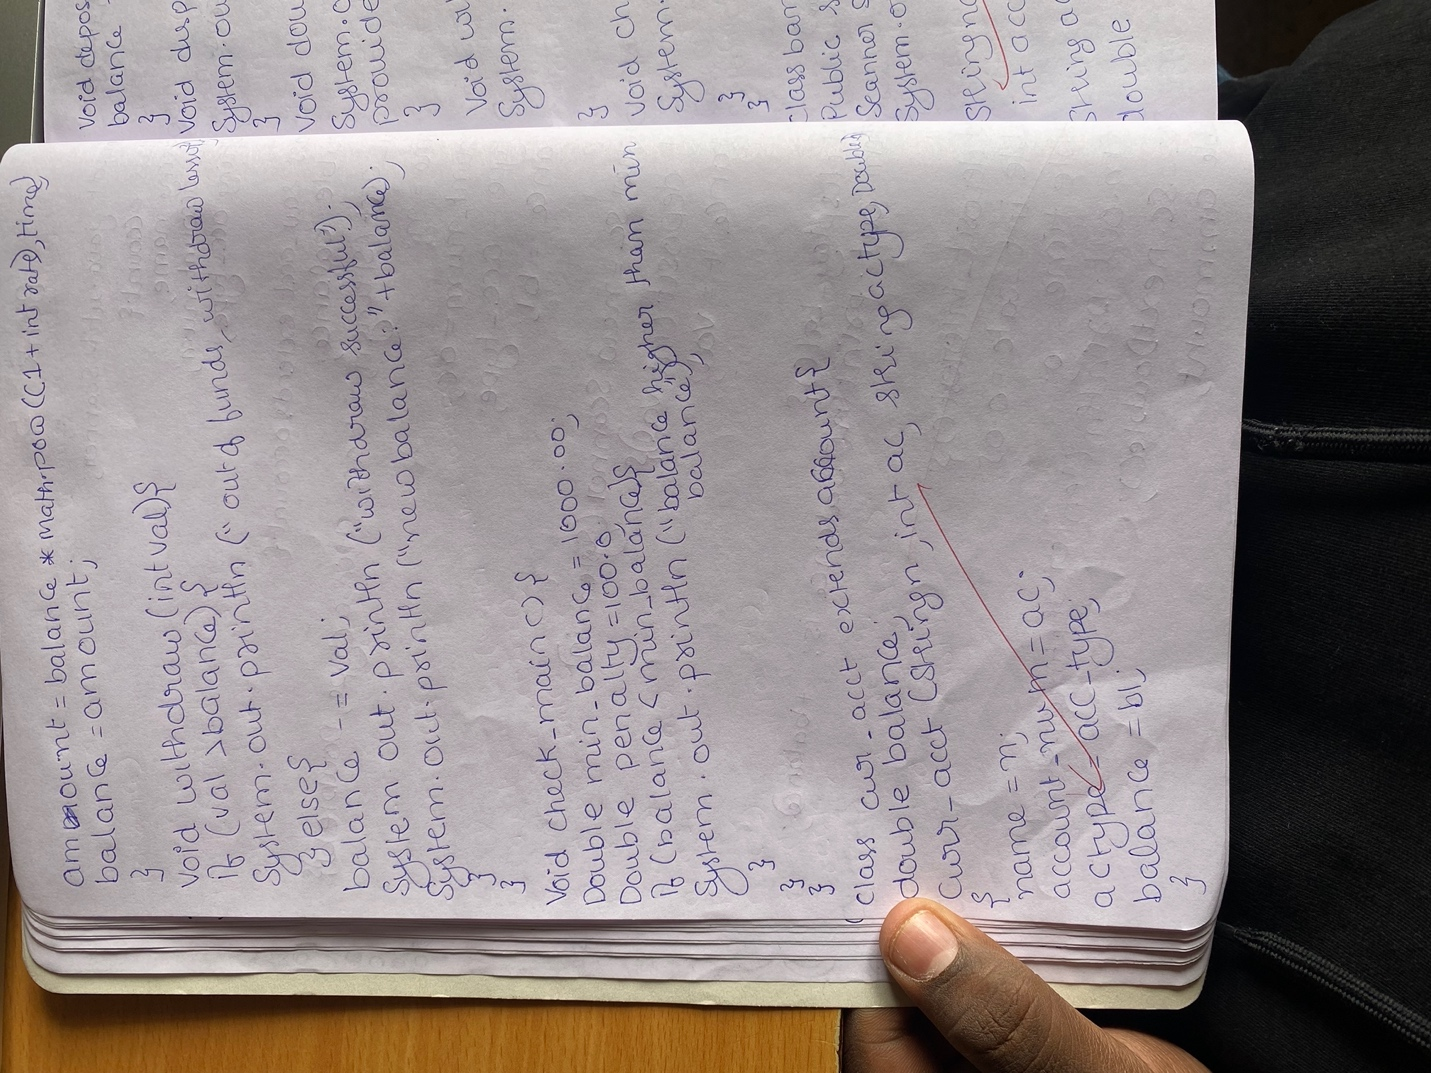 amount = balance * math.pow((1+intrate),time)
balance = amount;
}
void withdraw (int val){
if (val >balance){
System.out.println (" out of funds, withdraw
} else{
balance -= val;
System out.println ("withdraw successful").
System.out.println ("new balance:"+balance);
}
}
void check-main() {
Double min_balance = 1000.00;
Double penalty =100.0
if (balance < min_balance){
System.out.println ("balance higher than min
balance");
}
}
}
class cur-act extends account{
double balance;
curr-act (string n, int ac, string actype, Double
{
name = n;
account-num = ac;
actype = acc-type;
balance = bl;
}
void depos
balance
}
void disp
System.ou
}
void dou
System.o
provide
}
void wi
System.
}
void ch
System.
}
}
class ban
Public s
Scanner s
System.o
string n
int acc
string ac
double